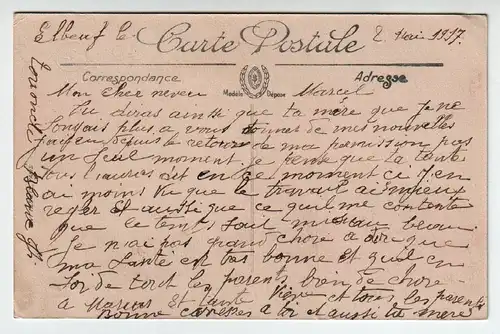 Elbeuf le 2 Mai 1917.
Carte Postale
Correspondance
Adresse
Modèle Déposé
Mon cher neveu Marcel
Tu diras ainsi que ta mère que je ne
songais plus a vous donner de mes nouvelles
depuis le retour de ma permission pas
un seul moment. Je pense que la tante
vous aurais dit en ce moment ci j'en
ai moins vu que le travail ai mieux
regler et aussi que ce qui me contente
que le temp sont mis au beau
Je n'ai pas grand chose a dire que
ma santé est bas bonne et quel en
soi de tout les parents bon de chose
a Marius et tante et tous les parents
Bonne caresses a toi et aussi ta mère
ton oncle